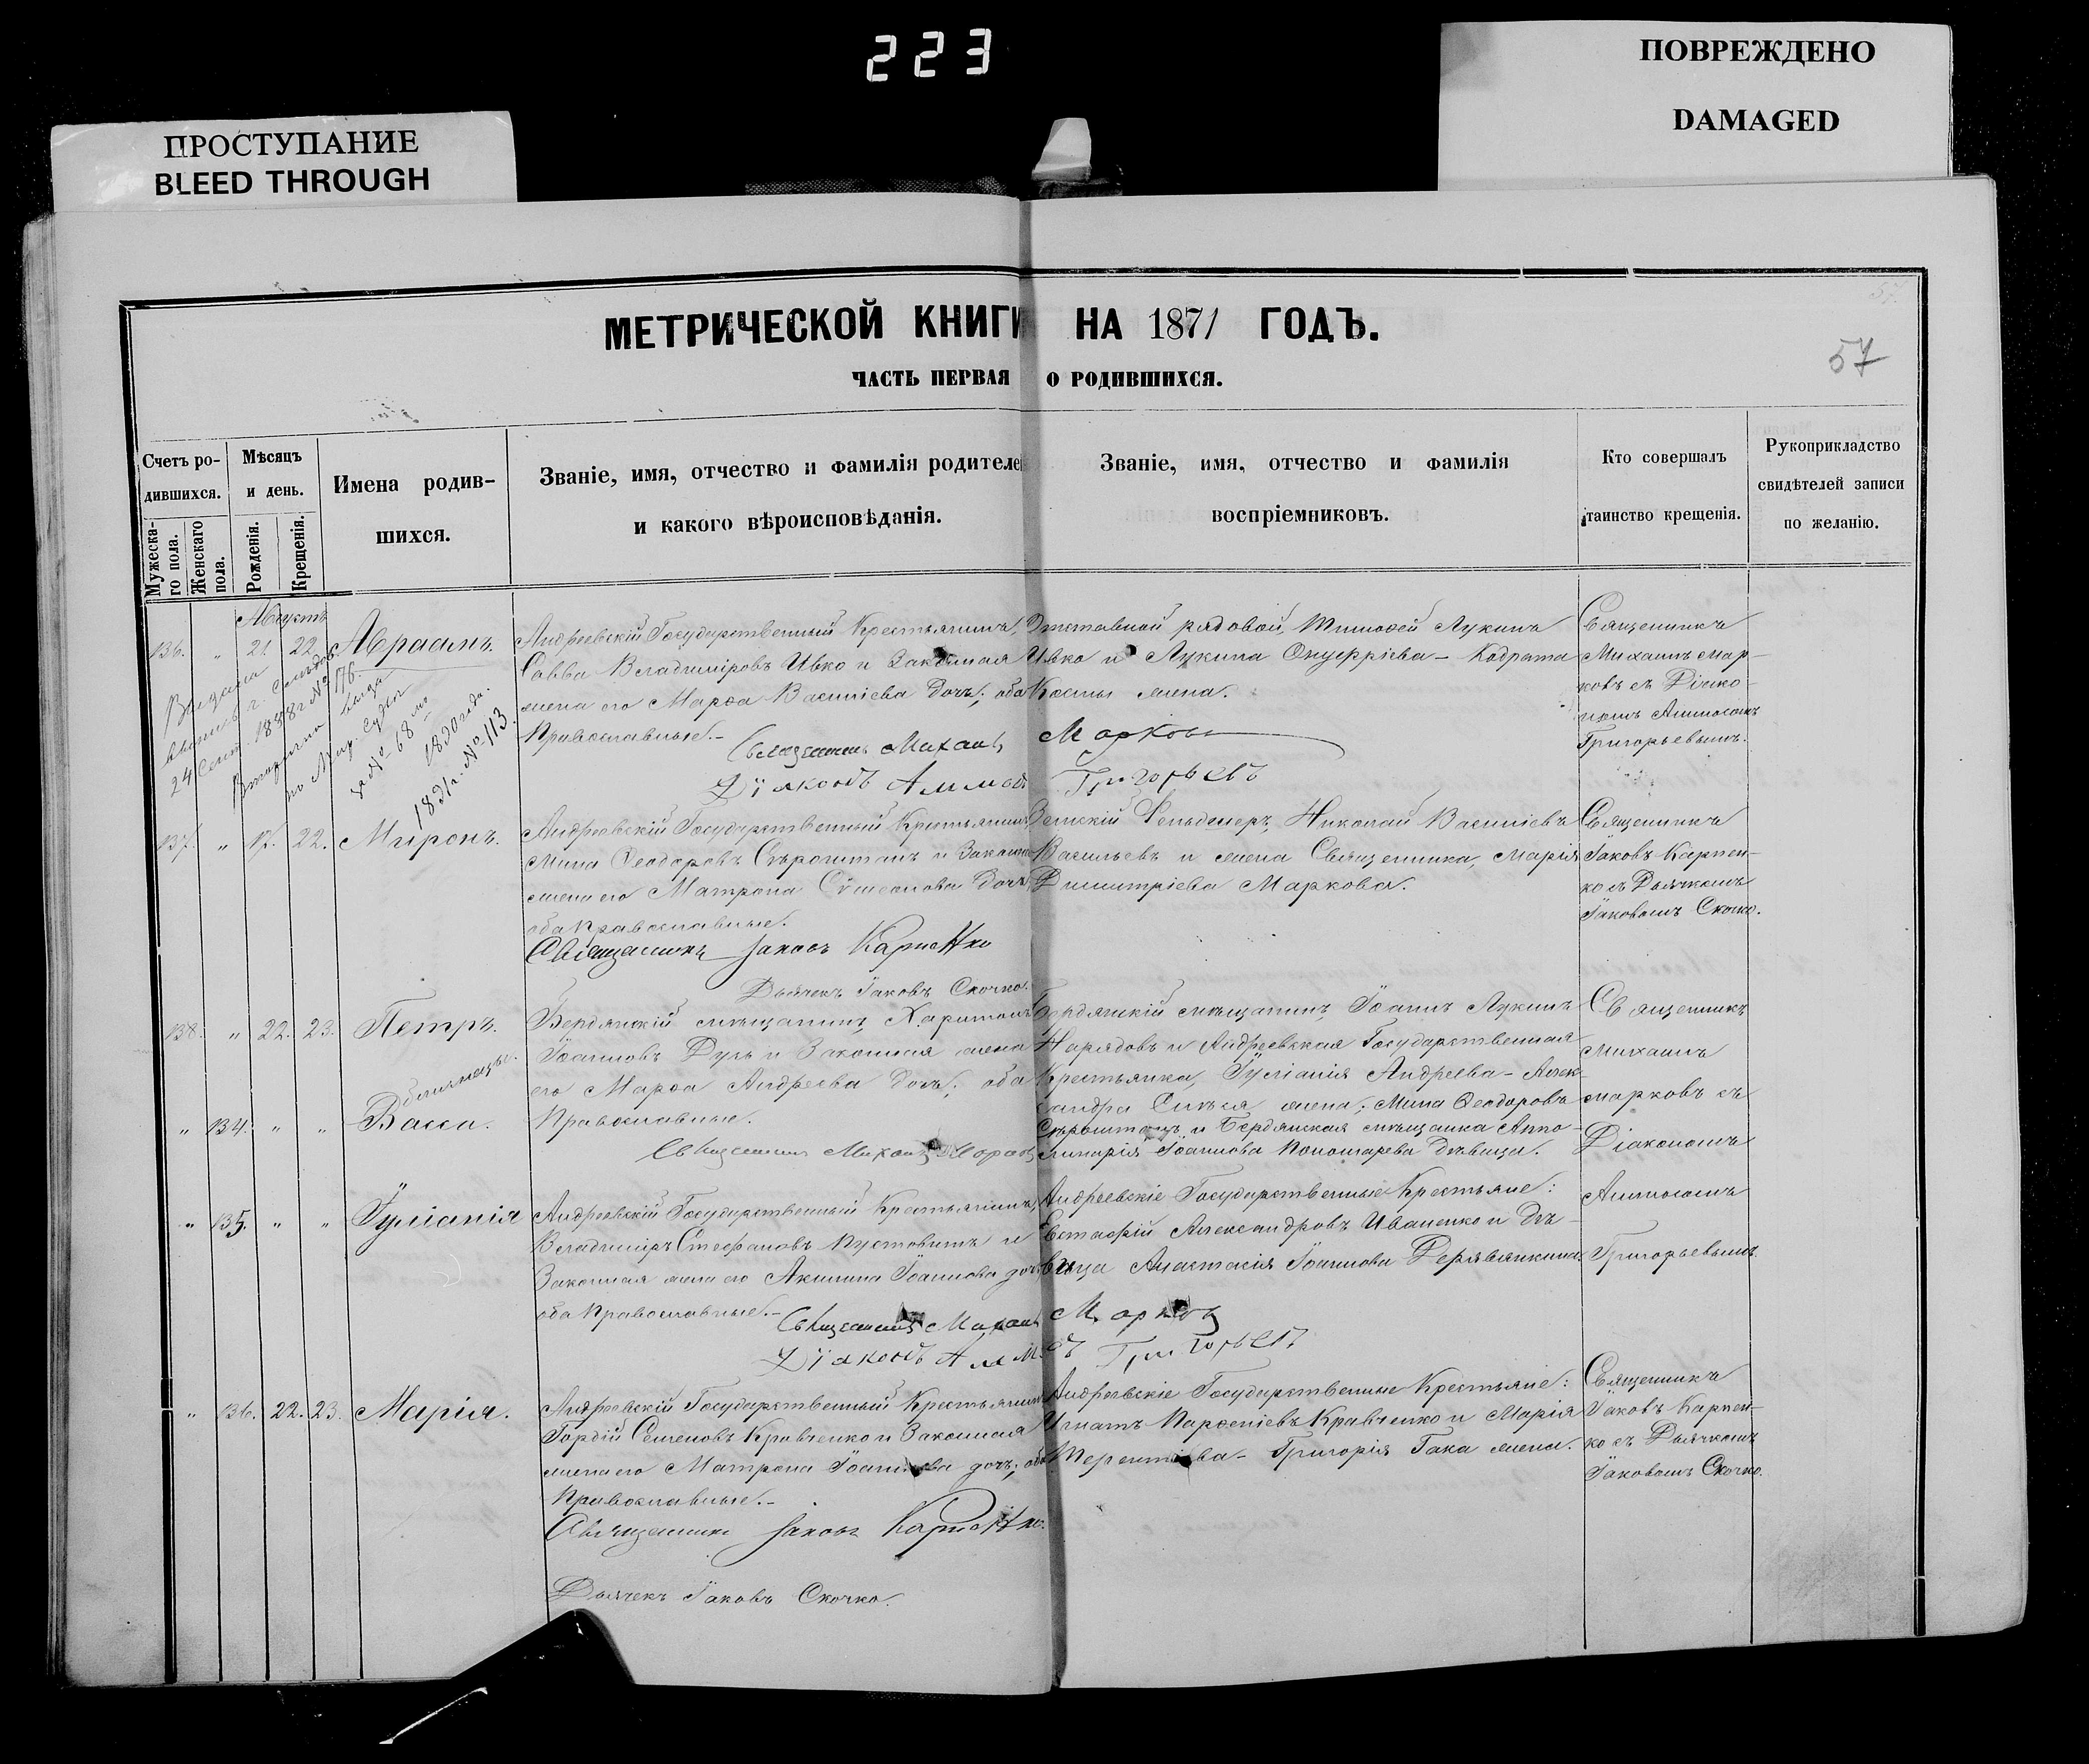 223
ПОВРЕЖДЕНО
DAMAGED
ПРОСТУПАНИЕ
BLEED THROUGH
МЕТРИЧЕСКОЙ КНИГИ НА 1871 ГОДЪ.
57
ЧАСТЬ ПЕРВАЯ О РОДИВШИХСЯ.
Счетъ ро-
дившихся.
Мужеска-
го пола.
Женскаго
пола.
Мѣсяцъ
и день.
Рожденія.
Крещенія.
Имена родив-
шихся.
Званіе, имя, отчество и фамилія родителе
и какого вѣроисповѣданія.
Званіе, имя, отчество и фамилія
воспріемниковъ.
Кто совершалъ
таинство крещенія.
Рукоприкладство
свидѣтелей записи
по желанію.
Августъ
136. " 21. 22. Авраамъ.
Андреевскій Государственный Крестьянинъ,
Савва Владиміровъ Ивко и Законная
жена его Марѳа Василіева дочь; оба
Православные.
Отставной рядовой, Тимоѳей Лукинъ
Ивко и Лукина Онуфріева - Кодрата
Косты жена.
Священникъ Михаилъ Марковъ
Діаконъ Григорьевъ
Священникъ
Михаилъ Мар-
ковъ съ Діако-
номъ
Григорьевымъ.
24 Сент. 1888 г. № 176.
за № 68
1890 года.
1891 г. № 113.
137. " 17. 22. Миронъ.
Андреевскій Государственный Крестьянинъ
Мина Ѳеодоровъ и Законная
жена его Матрона Сѵмеонова дочь,
оба Православные.
Священникъ Іаковъ Карпенко
Дьячекъ Іаковъ Скочко.
Земскій Фельдшеръ, Николай Василіевъ
Васильевъ и жена Священника, Марія
Димитріева Маркова.
Священникъ
Іаковъ Карпен-
ко съ Дьячкомъ
Іаковомъ Скочко.
138. " 22. 23. Петръ.
близнецы.
" 134. " " Васса.
Бердянскій мѣщанинъ, Харитонъ
Іоанновъ Дузь и Законная жена
его Марѳа Андреева дочь; оба
Православные.
Священникъ Михаилъ Марковъ
Бердянскій мѣщанинъ, Іоаннъ Лукинъ
Нарядовъ и Андреевская Государственная
Крестьянка, Іуліанія Андреева - Алек-
сандра жена; Мина Ѳеодоровъ
и Бердянская мѣщанка Аппо-
линарія Іоаннова Пономарева дѣвица.
Священникъ
Михаилъ
Марковъ съ
Діакономъ
Григорьевымъ
" 135. " " Іуліанія
Андреевскій Государственный Крестьянинъ,
Владиміръ Стефановъ Пустовитъ и
Законная жена его Акилина Іоаннова дочь,
оба Православные.
Андреевскіе Государственные Крестьяне:
Евстафій Александровъ Иваненко и дѣ-
вица Анастасія Іоаннова Деревянкина.
Священникъ Михаилъ Марковъ
Діаконъ Григорьевъ
" 136. 22. 23. Марія.
Андреевскій Государственный Крестьянинъ
Гордій Семеновъ Кравченко и Законная
жена его Матрона Іоаннова дочь; оба
Православные.
Священникъ Іаковъ Карпенко.
Дьячекъ Іаковъ Скочко.
Андреевскіе Государственные Крестьяне:
Игнатъ Парѳеніевъ Кравченко и Марія
Терентіева - Григорія Гака жена.
Священникъ
Іаковъ Карпен-
ко съ Дьячкомъ
Іаковомъ Скочко.